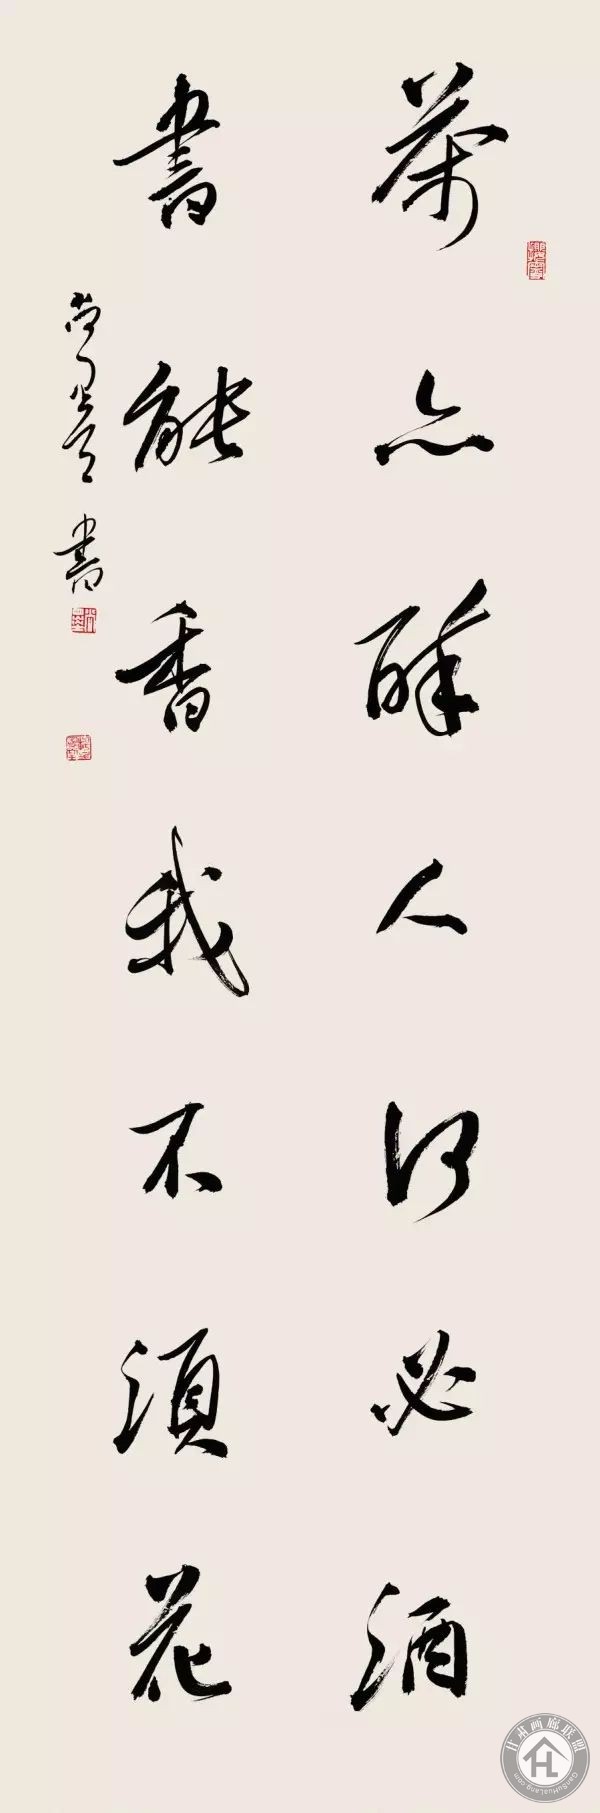 茶亦醉人何必酒
書能香我不須花
書
甘肃画廊联盟
GanSuHuaLang.com